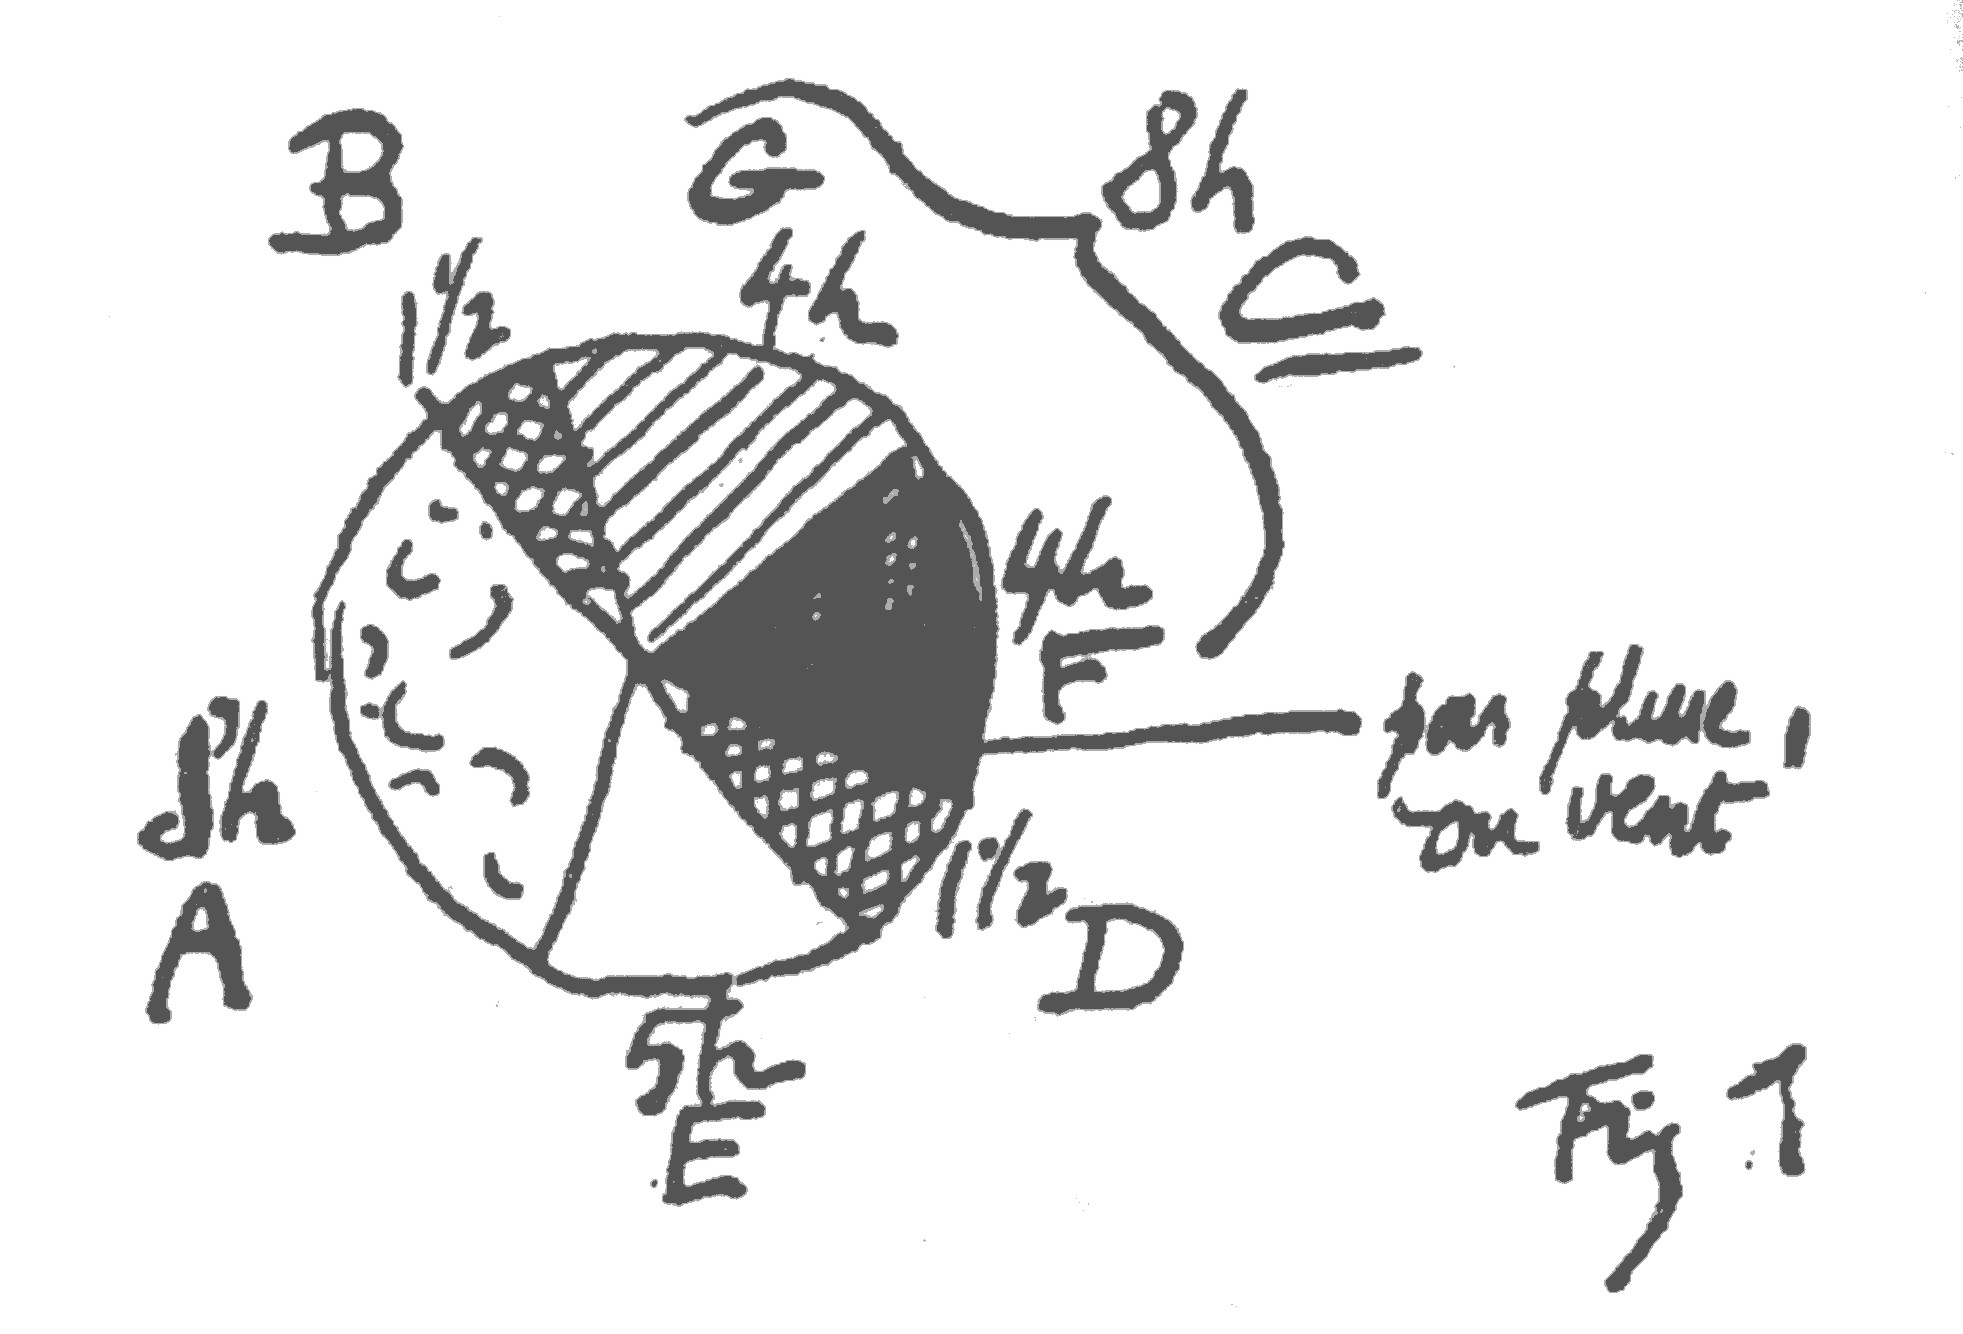 B
G
8h
C
1 1/2
4h
4h
F
par pluie,
ou vent
8h
A
1 1/2
D
5h
E
Fig 1